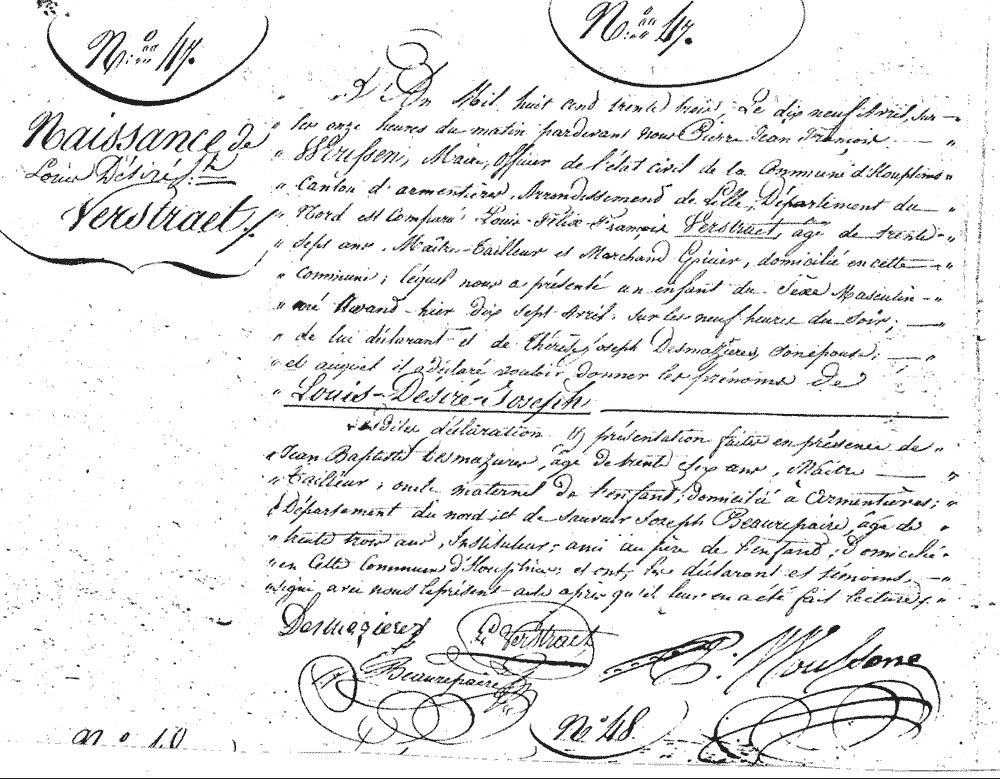 N.º 47.
N.º 47.
Naissance de
Louis Désiré J.h
Verstraet,
L'An Mil huit cent trente trois, Le dix neuf Avril, Sur
les onze heures du matin pardevant nous Pierre Jean François
Maire, Officier de l'état civil de la Commune d'Houplines
Canton d'armentières, Arrondissement de Lille, Département du
Nord est Comparu Louis-Félix-François Verstraet, âgé de trente
sept ans, Maître-Tailleur et Marchand Epicier, domicilié en cette
Commune; lequel nous a présenté un enfant du Sexe Masculin
né Avand-hier dix Sept Avril. Sur les neuf heures du Soir;
de lui déclarant et de Thérèse Joseph Desmazieres, son épouse;
et auquel il a déclaré vouloir donner les prénoms de
Louis-Désiré-Joseph
Lesdites déclaration & présentation faites en présence de
Jean Baptiste Desmazieres, âgé de trente six ans, Maître
Tailleur; oncle maternel de l'enfant; domicilié à Armentières;
Département du nord; et de Sauveur Joseph Beaurepaire, âgé de
trente trois ans, Instituteur; ami au père de l'enfant; Domicilié
en Cette Commune d'Houplines; et ont, les déclarant et témoins
signé avec nous le présent acte après qu'il leur en a été fait lecture.
Desmazieres
Ls Verstraet
Beaurepaire
Nº 48.
Nº 48